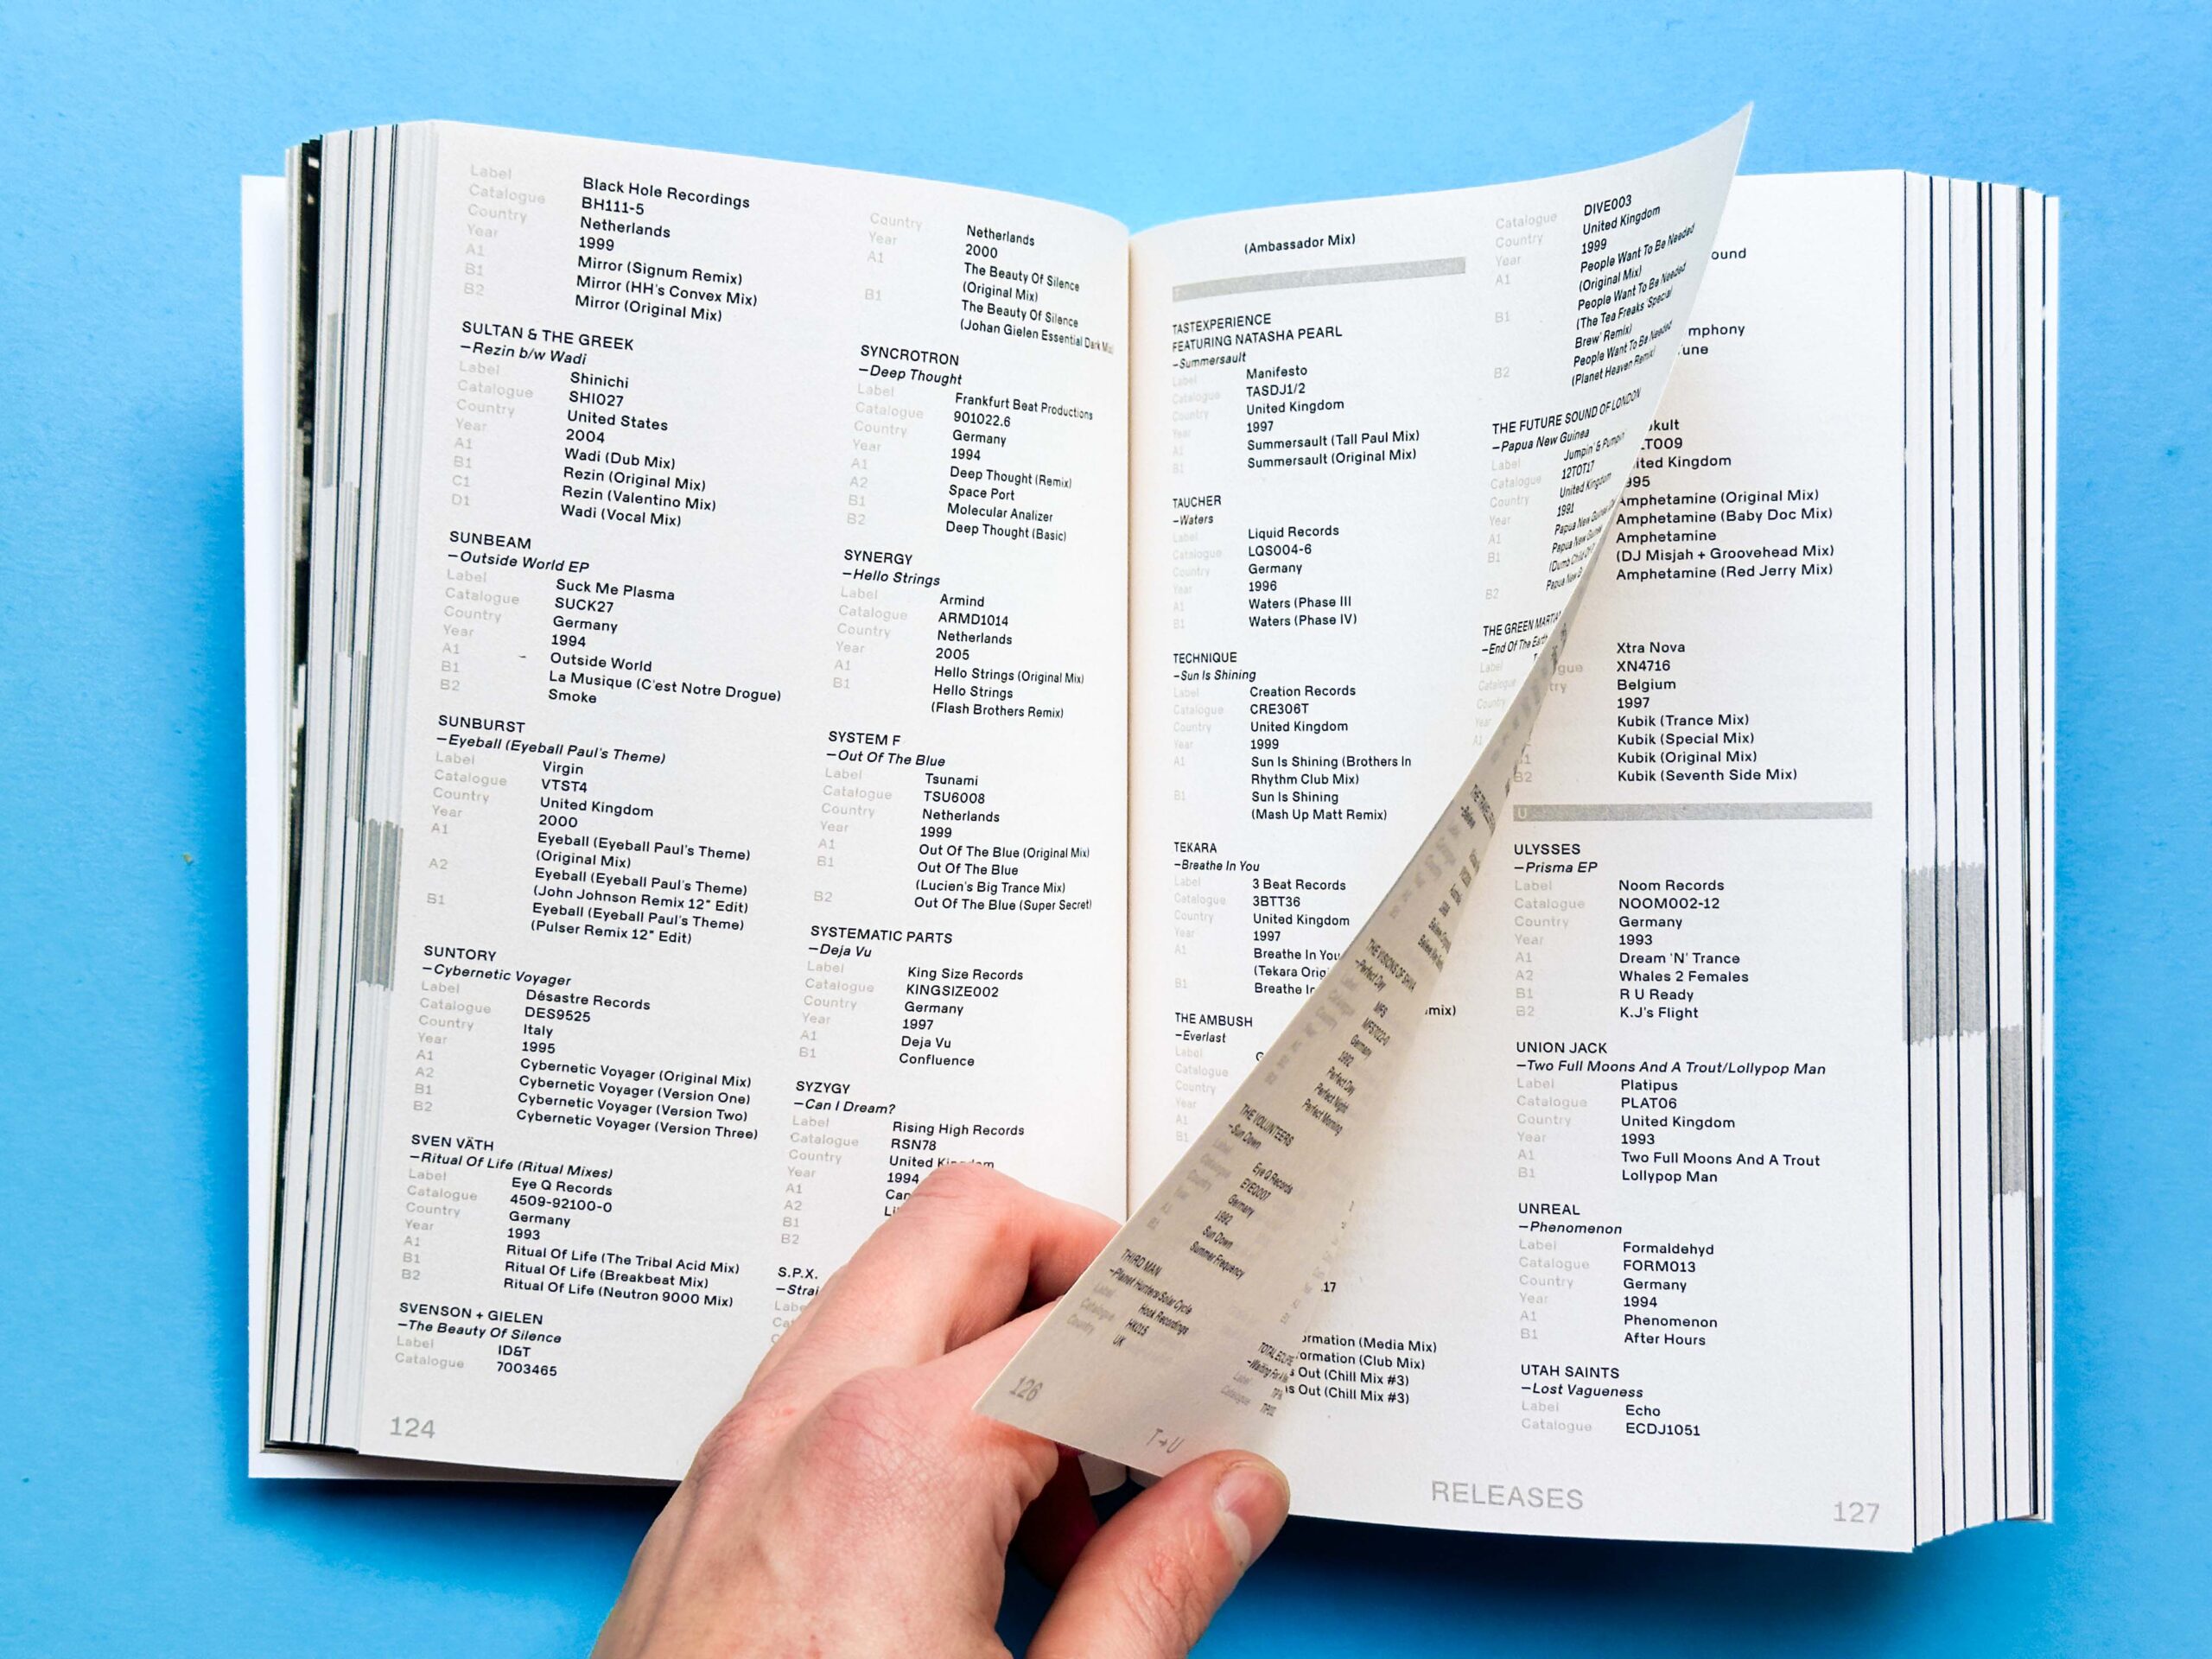 Label Black Hole Recordings
Catalogue BH111-5
Country Netherlands
Year 1999
A1 Mirror (Signum Remix)
B1 Mirror (HH's Convex Mix)
B2 Mirror (Original Mix)
SULTAN & THE GREEK
—Rezin b/w Wadi
Label Shinichi
Catalogue SHI027
Country United States
Year 2004
A1 Wadi (Dub Mix)
B1 Rezin (Original Mix)
C1 Rezin (Valentino Mix)
D1 Wadi (Vocal Mix)
SUNBEAM
—Outside World EP
Label Suck Me Plasma
Catalogue SUCK27
Country Germany
Year 1994
A1 Outside World
B1 La Musique (C'est Notre Drogue)
B2 Smoke
SUNBURST
—Eyeball (Eyeball Paul's Theme)
Label Virgin
Catalogue VTST4
Country United Kingdom
Year 2000
A1 Eyeball (Eyeball Paul's Theme)
(Original Mix)
A2 Eyeball (Eyeball Paul's Theme)
(John Johnson Remix 12" Edit)
B1 Eyeball (Eyeball Paul's Theme)
(Pulser Remix 12" Edit)
SUNTORY
—Cybernetic Voyager
Label Désastre Records
Catalogue DES9525
Country Italy
Year 1995
A1 Cybernetic Voyager (Original Mix)
A2 Cybernetic Voyager (Version One)
B1 Cybernetic Voyager (Version Two)
B2 Cybernetic Voyager (Version Three)
SVEN VÄTH
—Ritual Of Life (Ritual Mixes)
Label Eye Q Records
Catalogue 4509-92100-0
Country Germany
Year 1993
A1 Ritual Of Life (The Tribal Acid Mix)
B1 Ritual Of Life (Breakbeat Mix)
B2 Ritual Of Life (Neutron 9000 Mix)
SVENSON + GIELEN
—The Beauty Of Silence
Label ID&T
Catalogue 7003465
124
Country Netherlands
Year 2000
A1 The Beauty Of Silence
(Original Mix)
B1 The Beauty Of Silence
(Johan Gielen Essential Dark
SYNCROTRON
—Deep Thought
Label Frankfurt Beat Productions
Catalogue 901022.6
Country Germany
Year 1994
A1 Deep Thought (Remix)
A2 Space Port
B1 Molecular Analizer
B2 Deep Thought (Basic)
SYNERGY
—Hello Strings
Label Armind
Catalogue ARMD1014
Country Netherlands
Year 2005
A1 Hello Strings (Original Mix)
B1 Hello Strings
(Flash Brothers Remix)
SYSTEM F
—Out Of The Blue
Label Tsunami
Catalogue TSU6008
Country Netherlands
Year 1999
A1 Out Of The Blue (Original Mix)
B1 Out Of The Blue
(Lucien's Big Trance Mix)
B2 Out Of The Blue (Super Secret)
SYSTEMATIC PARTS
—Deja Vu
Label King Size Records
Catalogue KINGSIZE002
Country Germany
Year 1997
A1 Deja Vu
B1 Confluence
SYZYGY
—Can I Dream?
Label Rising High Records
Catalogue RSN78
Country United
Year 1994
A1
A2
B1
B2
S.P.X.
(Ambassador Mix)
TASTEXPERIENCE
FEATURING NATASHA PEARL
—Summersault
Label Manifesto
Catalogue TASDJ1/2
Country United Kingdom
Year 1997
A1 Summersault (Tall Paul Mix)
B1 Summersault (Original Mix)
TAUCHER
—Waters
Label Liquid Records
Catalogue LQS004-6
Country Germany
Year 1996
A1 Waters (Phase III
B1 Waters (Phase IV)
TECHNIQUE
—Sun Is Shining
Label Creation Records
Catalogue CRE306T
Country United Kingdom
Year 1999
A1 Sun Is Shining (Brothers In
Rhythm Club Mix)
B1 Sun Is Shining
(Mash Up Matt Remix)
TEKARA
—Breathe In You
Label 3 Beat Records
Catalogue 3BTT36
Country United Kingdom
Year 1997
A1 Breathe In You
(Tekara
B1 Breathe
THE AMBUSH
—Everlast
Label
Catalogue
Country
Year
A1
B1
Catalogue DIVE003
Country United Kingdom
Year 1999
A1 People Want To Be Needed
(Original Mix)
B1 People Want To Be Needed
(The Tea Freaks 'Special
Brew' Remix)
B2 People Want To Be Needed
(Planet Heaven Remix)
THE FUTURE SOUND OF LONDON
—Papua New Guinea
Label Jumpin' & Pumpin'
Catalogue 12TOT17
Country United Kingdom
Year 1991
A1 Papua New
B1 Papua New Guinea
B2 Papua New
THE GREEN
—End Of The Earth
Label
Catalogue
Country
Year
A1
THE VISIONS OF SHIVA
—Perfect Day
MFS
Germany
1992
Perfect Day
Perfect Night
Perfect Morning
THE VOLUNTEERS
—Sun Down
Eye Q Records
Germany
1992
Sun Down
Summer Frequency
THIRD MAN
—Planet Hunters/Solar Cycle
Label Hook Recordings
Catalogue HK015
Country UK
126
T→U
Amphetamine (Original Mix)
Amphetamine (Baby Doc Mix)
Amphetamine
(DJ Misjah + Groovehead Mix)
Amphetamine (Red Jerry Mix)
Xtra Nova
XN4716
Belgium
1997
Kubik (Trance Mix)
Kubik (Special Mix)
Kubik (Original Mix)
B2 Kubik (Seventh Side Mix)
U
ULYSSES
—Prisma EP
Label Noom Records
Catalogue NOOM002-12
Country Germany
Year 1993
A1 Dream 'N' Trance
A2 Whales 2 Females
B1 R U Ready
B2 K.J's Flight
UNION JACK
—Two Full Moons And A Trout/Lollypop Man
Label Platipus
Catalogue PLAT06
Country United Kingdom
Year 1993
A1 Two Full Moons And A Trout
B1 Lollypop Man
UNREAL
—Phenomenon
Label Formaldehyd
Catalogue FORM013
Country Germany
Year 1994
A1 Phenomenon
B1 After Hours
UTAH SAINTS
—Lost Vagueness
Label Echo
Catalogue ECDJ1051
(Media Mix)
(Club Mix)
Out (Chill Mix #3)
Out (Chill Mix #3)
RELEASES
127